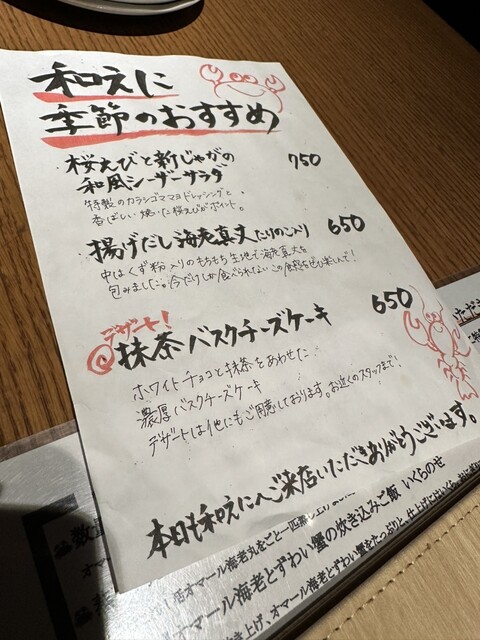 和えに
季節のおすすめ
桜えびと新じゃがの 750
和風シーザーサラダ
特製のカラシゴママヨドレッシングと、
香ばしい焼いた桜えびがポイント。
揚げだし海老真丈たけのこ入り 650
中はくず粉入りのもちもち生地で海老真丈を
包みました。今だけしか食べられないこの食感をぜひ楽しんで!
デザート!
抹茶バスクチーズケーキ 650
ホワイトチョコと抹茶をあわせた
濃厚バスクチーズケーキ
デザートは他にもご用意しております。お近くのスタッフまで!
本日も和えにへご来店いただきありがとうございます。
オマール海老とずわい蟹の炊き込みご飯 いくらのせ